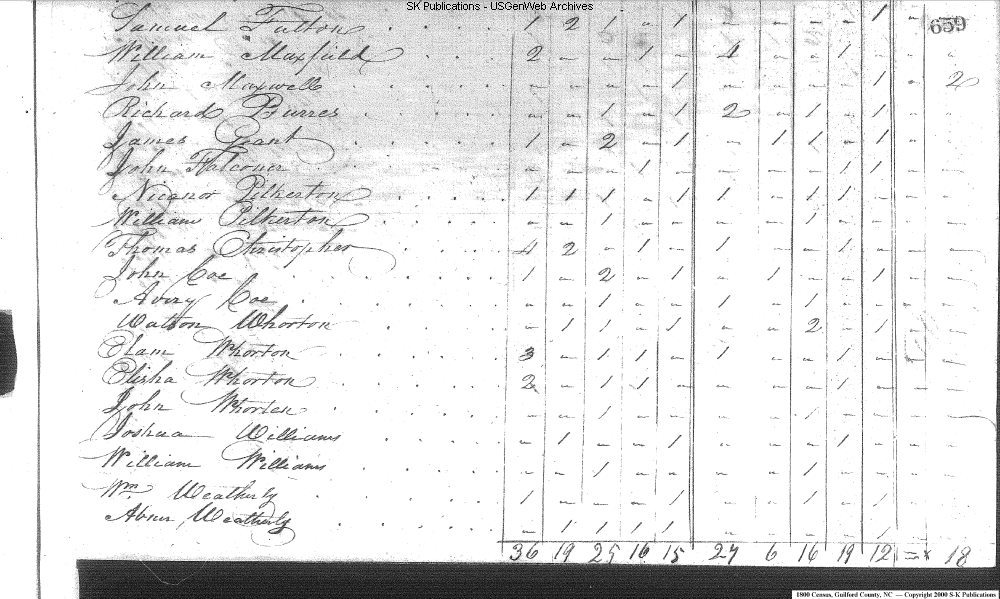 SK Publications - USGenWeb Archives
659
Samuel Fulton . . . . 1 2 1 - 1 - - - - 1 - -
William Maxfield . . . 2 - - 1 - 4 - - 1 - - -
John Maxwell . . . . - - - - 1 - - - - 1 - 2
Richard Burres . . . . - - 1 - 1 2 - 1 - 1 - -
James Grant . . . . 1 - 2 - 1 - 1 1 - 1 - -
John Falconer . . . . - - - 1 - - - - 1 1 - -
Nicanor Pilkerton . . . . 1 1 1 - 1 1 - 1 - 1 - -
William Pilkerton . . . . - - 1 - - - - 1 - - - -
Thomas Christopher . . . . 4 2 - 1 - 1 - - 1 - - -
John Coe . . . . 1 - 2 - 1 - 1 - - 1 - -
Avory Coe . . . . - - 1 - - 1 - 1 - - - -
Watson Whorton . . . . - 1 1 - 1 - - 2 - 1 - -
Elam Whorton . . . . 3 - 1 1 - 1 - - 1 - - -
Elisha Whorton . . . . 2 - 1 1 - - - - 1 - - -
John Whorton . . . . - - 1 - - - - 1 - - - -
Joshua Williams . . . . - 1 - - 1 - - - 1 - - -
William Williams . . . . - - 1 - - - - 1 - - - -
Wm Weatherly . . . . 1 - - - 1 - - 1 - 1 - -
Abner Weatherly . . . . - 1 1 1 1 - - - - 1 - -
36 19 25 16 15 27 6 16 19 12 18
1800 Census, Guilford County, NC — Copyright 2000 S-K Publications